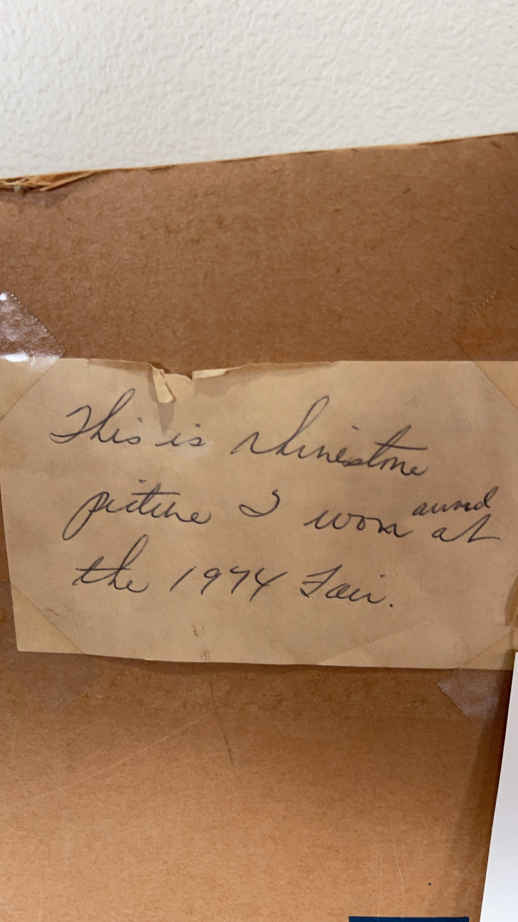 This is rhinestone
picture I won at
the 1974 Fair.